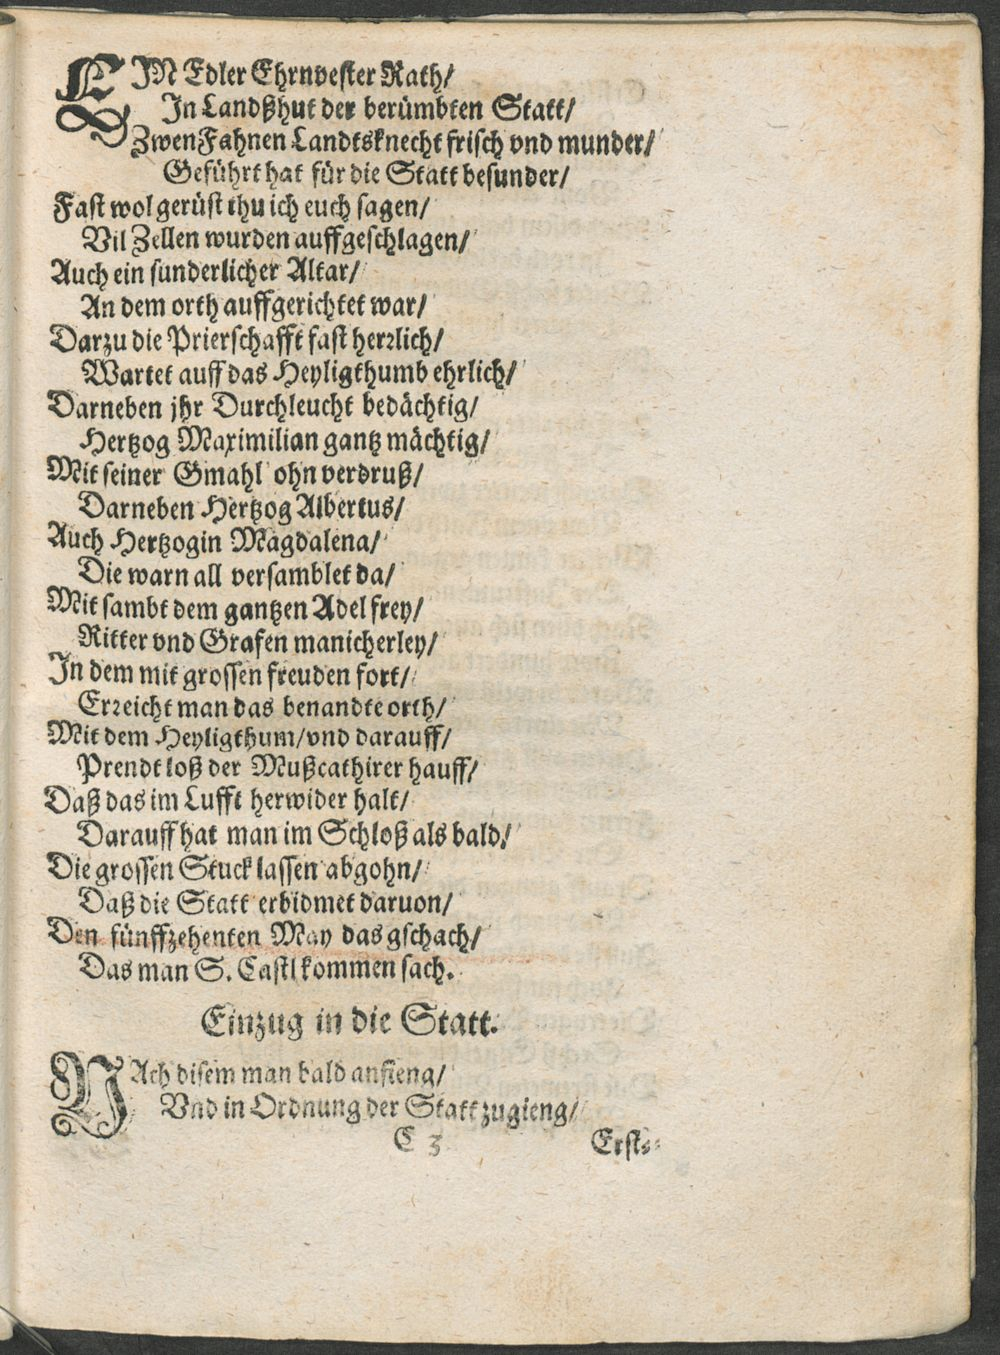 EIN Edler Ehrnvester Rath/
In Landßhut der berümbten Statt/
Zwen Fahnen Landtsknecht frisch vnd munder/
Geführt hat für die Statt besunder/
Fast wol gerüst thu ich euch sagen/
Vil Zellen wurden auffgeschlagen/
Auch ein sunderlicher Altar/
An dem orth auffgerichtet war/
Darzu die Prierschafft fast herrlich/
Wartet auff das Heyligthumb ehrlich/
Darneben jhr Durchleucht bedächtig/
Hertzog Maximilian gantz mächtig/
Mit seiner Gmahl ohn verdruß/
Darneben Hertzog Albertus/
Auch Hertzogin Magdalena/
Die warn all versamblet da/
Mit sambt dem gantzen Adel frey/
Ritter vnd Grafen manicherley/
In dem mit grossen freuden fort/
Erreicht man das benandte orth/
Mit dem Heyligthum/vnd darauff/
Prendt loß der Mußcathirer hauff/
Daß das im Lufft herwider halt/
Darauff hat man im Schloß als bald/
Die grossen Stuck lassen abgohn/
Daß die Statt erbidmet daruon/
Den fünffzehenten May das gschach/
Das man S. Castl kommen sach.
Einzug in die Statt.
NAch disem man bald anfieng/
Vnd in Ordnung der Statt zugieng/
C 3 Erst-